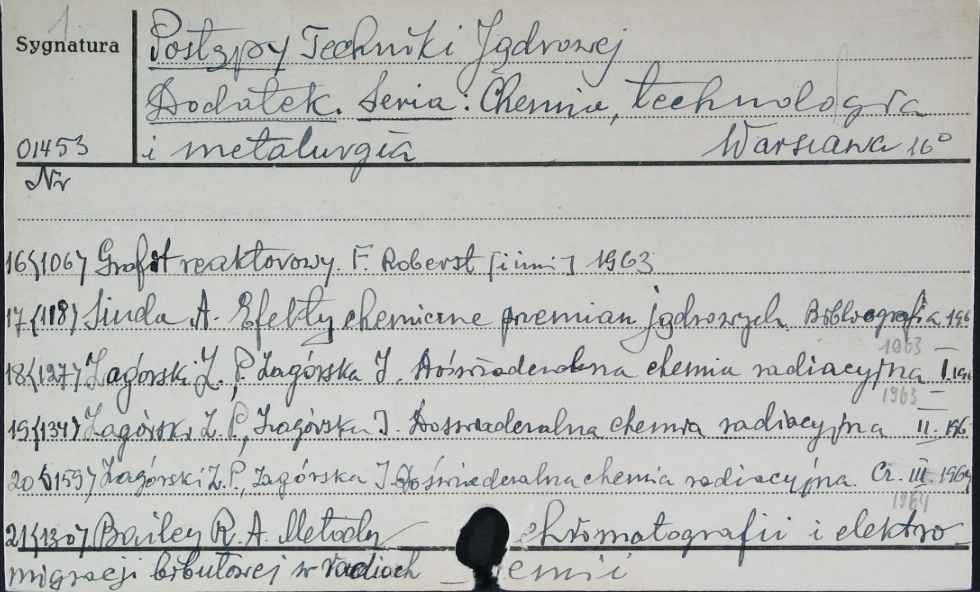 Sygnatura
1
Postępy Techniki Jądrowej
Dodatek. Seria: Chemia, technologia
01453 i metalurgia Warszawa 16°
Nr
16(106) Grafit reaktorowy. F. Roberst [i inni] 1963
17(118) Siuda A. Efekty chemiczne przemian jądrowych. Bibliografia 196
1963
18(127) Zagórski Z. P., Zagórska I. Doświadczalna chemia radiacyjna I. 196
1963
19(134) Zagórski Z. P., Zagórska I. Doświadczalna chemia radiacyjna II. 196
20(159) Zagórski Z. P., Zagórska I. Doświadczalna chemia radiacyjna. Cz. III. 1964
1964
21(130) Bailey R. A. Metody chromatografii i elektro-
migracji bibułowej w radioch emii